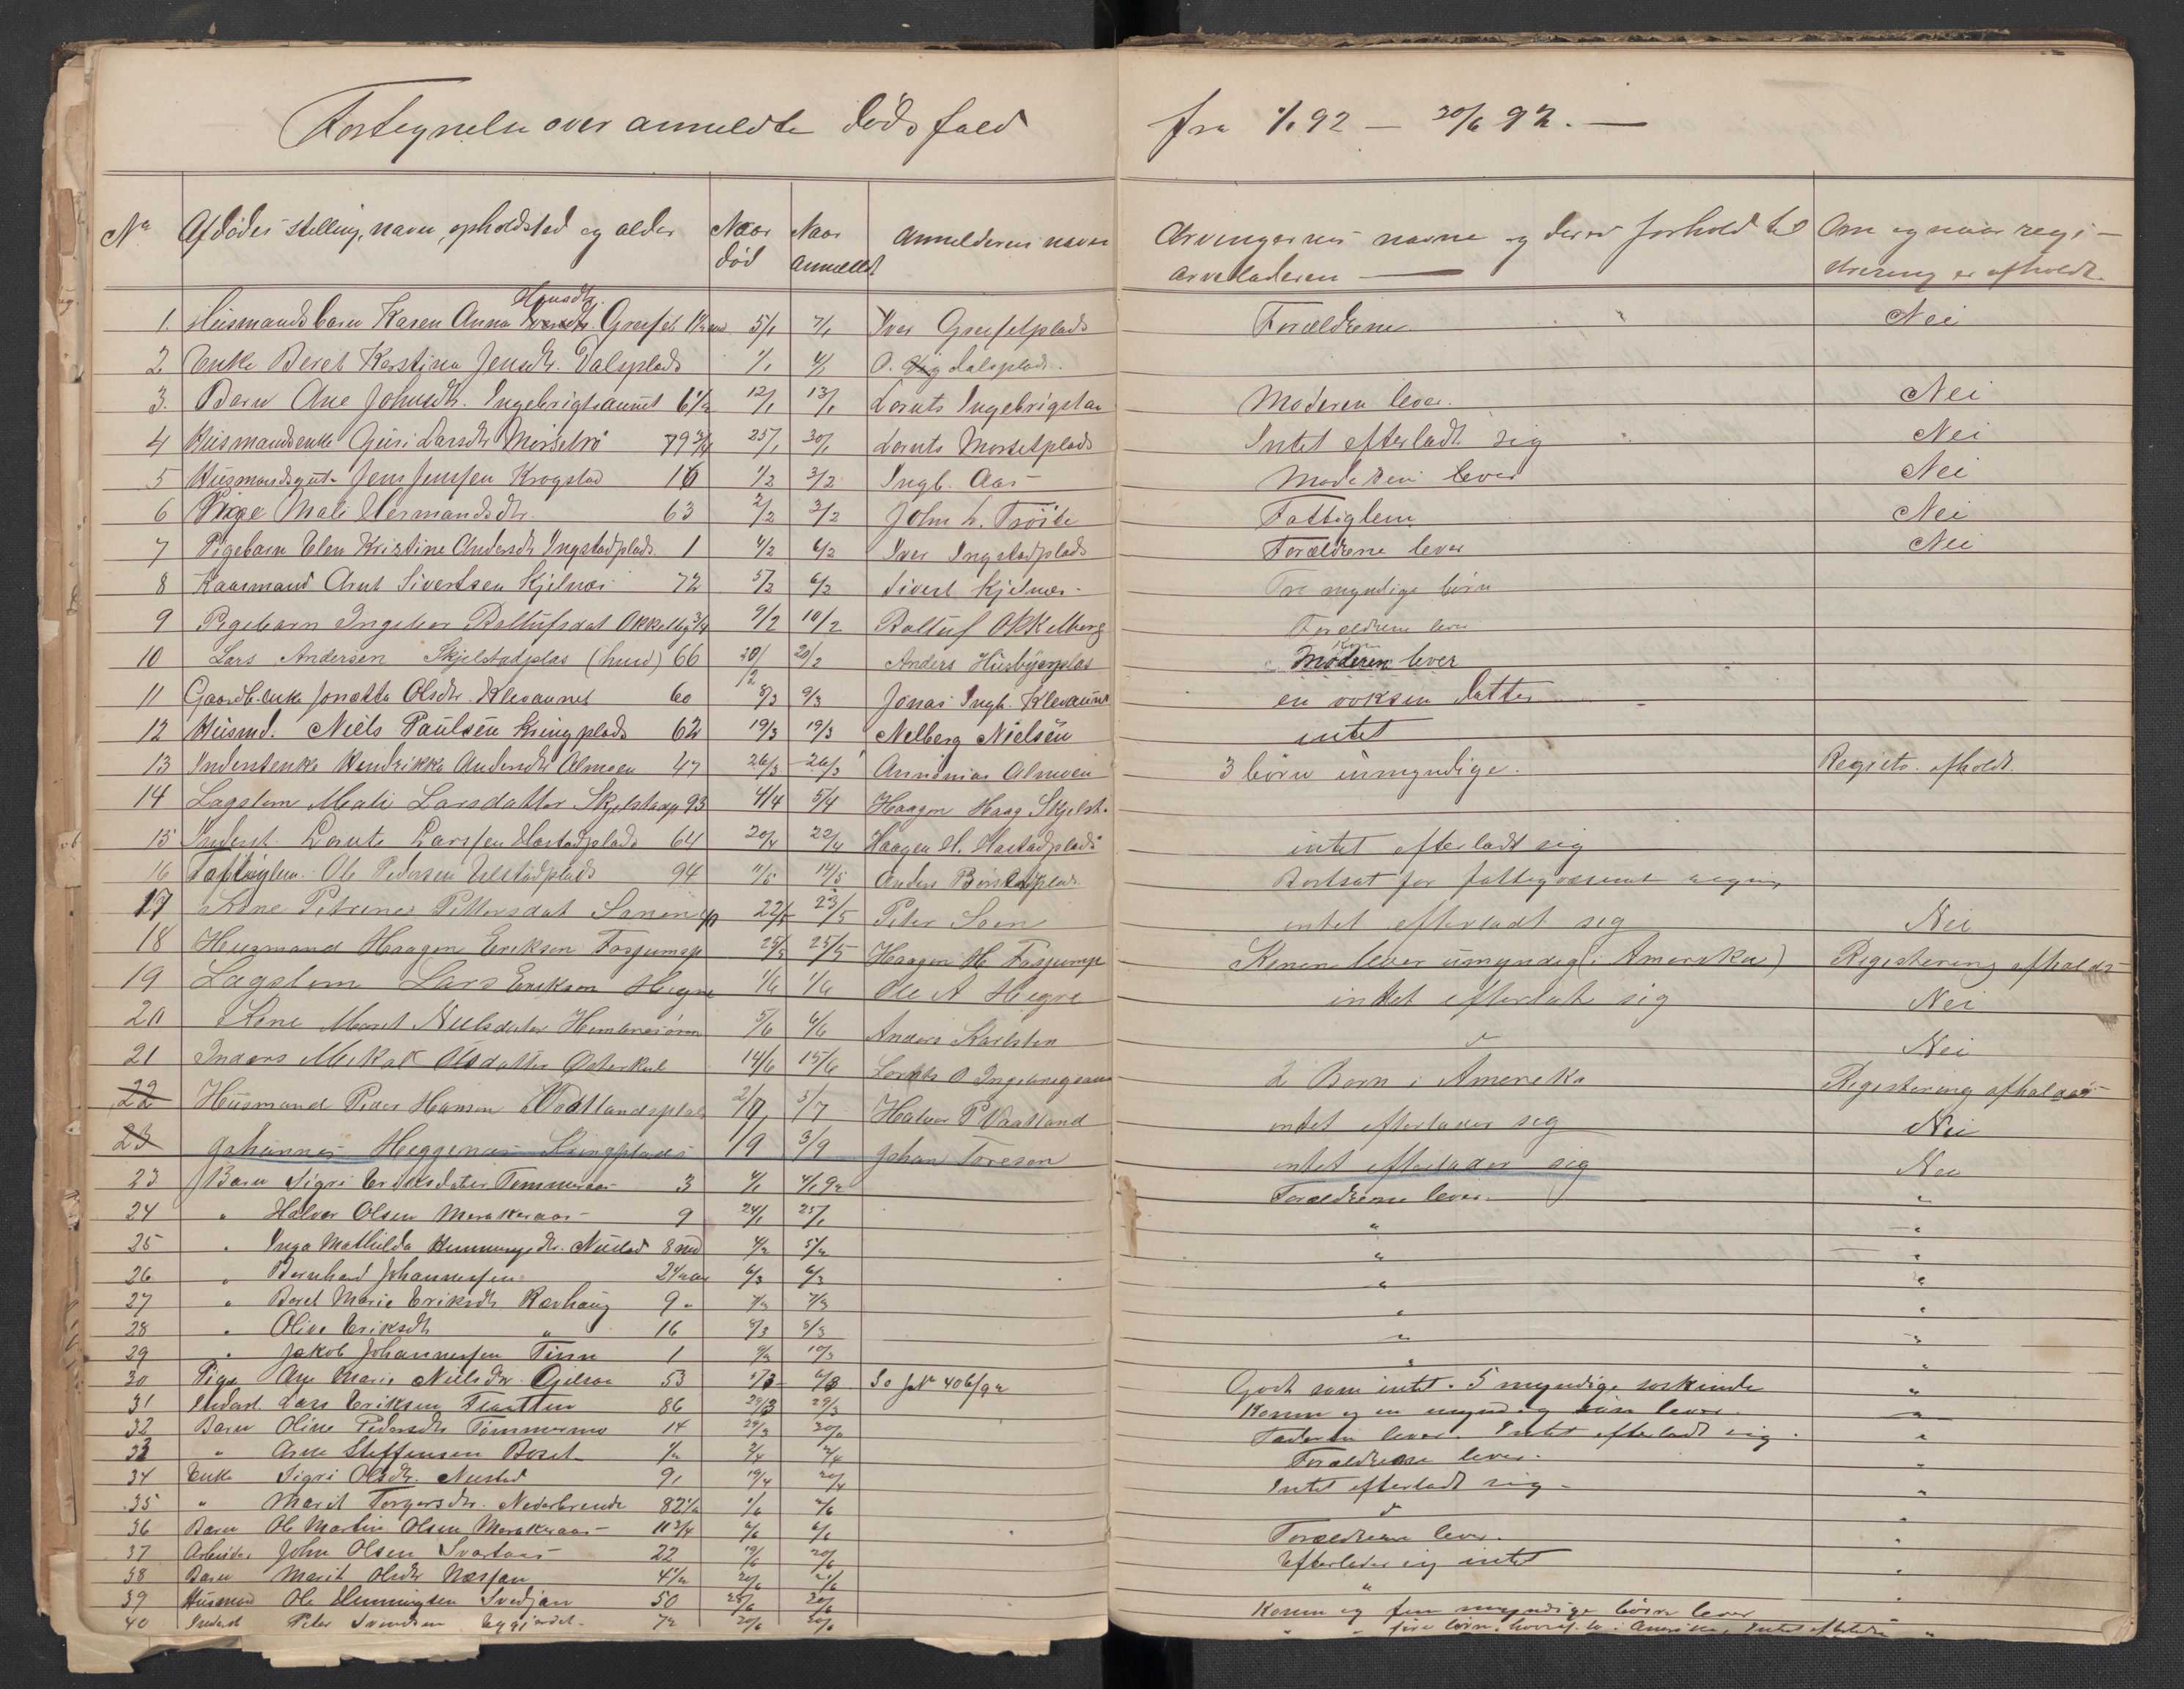 Fortegnelse over anmeldte dødsfald fra 1/1 92 — 30/6 92. —
No Afdødes stilling, navn, opholdsted og alder Naar død Naar anmeldt Anmelderens navn Arvingernes navne og deres forhold til arveladeren — Om og naar regi-strering er afholdt.
1. Husmandsbarn Karen Anna Hansdtr. 5/1 7/1 Iver Forældrene Nei
2 Enke Beret Kerstina Jensdtr. Dalsplads 1/1 4/1 O. dalsplads.
3. Barn Ane Johnsdtr. Ingebrigtsaunet 6 1/2 12/1 13/1 Lornts Ingebrigtsau Moderen lever. Nei
4 Husmandsenke Guri Larsdtr 79 3/4 25/1 30/1 Lornts Morsetplads Intet efterladt sig Nei
5 Husmandsgut Jens Jensen Krogstad 16 1/2 3/2 Ingb. Aas Moderen lever Nei
6 Pige Mali Hermandsdtr. 63 2/2 3/2 John L. Trøite Fattiglem Nei
7 Pigebarn Elen Kristine Andersdtr Ingstadplads. 1 4/2 6/2 Iver Ingstadplads Forældrene lever Nei
8 Kaarmand Arnt Sivertsen Kjelnæs 72 5/2 6/2 Sivert Kjelnæs Tre myndige børn
9 Pigebarn Ingebor Okkelbg 3/4 9/2 10/2 Okkelberg Forældrene lever
10 Lars Andersen Skjelstadplas (husd) 66 20/2 20/2 Anders Husbyenplas Moderen lever
11 Gaardb. enke Jonetta Olsdtr. Klevaunet 60 8/3 9/3 Jonas Ingb. Klevaunet en voksen datter
12 Husmd. Niels Paulsen Kringplads 62 19/3 19/3 Melberg Nielsen intet
13 Inderstenke Hendrikka Andersdtr Almoen 47 26/3 26/3 Annanias Almoen 3 børn umyndige. Registr. afholdt.
14 Lagslem Mali Larsdatter Skjelstadp 93 4/4 5/4 Haagen Haag Skjelst.
15 Inderst Lornts Larssen Hastadplads 64 20/4 22/4 Haagen H. Hastadplads intet efterladt sig
16 Fattiglem. Ole Pedersen 94 11/5 14/5 Anders Bortsat for fattigvæsenets regning
17 Kone Petrine Pettersdat 22/5 23/5 Peter Soen intet efterladt sig Nei
18 Husmand Haagen Eriksen Fosjumsp 25/5 25/5 Haagen H Fosjumsp Konen lever umyndig (i Amerika) Registering afholdt
19 Lagslem Lars Eriksen Hegre 1/6 1/6 Ole A Hegre intet efterladt sig Nei
20 Kone Maret Nielsdatter 5/6 6/6 Anders Karlsten Nei
21 Inders Mekal Olsdatter Østerkil 14/6 15/6 Lornts O Ingebrigsaun 2 Børn i Amereka Registering afholdes
22 Husmand Peder Hansen Vådtlandsplads 2/7 3/7 Halvor P Vaatland intet efterlader sig Nei
23 Johannes Heggenes Kringplads 1/9 3/9 Johan Toresen intet efterlader sig Nei
23 Barn Sigri Eriksdatter Tømmeraas 3 4/1 4/1 92 Forældrene lever. "
24 " Halvor Olsen Merakeraas 9 24/1 25/1 " "
25 " Inga Mathilda Hemmingsdtr. Nustad 8 md 4/2 5/2 " "
26 " Bernhard Johannessen 2 1/2 aar 6/3 6/3 " "
27 " Beret Marie Eriksdtr Rævhaug 9 " 7/3 7/3 " "
28 " Oline Eriksdtr " 16 8/3 8/3 " "
29 " Jakob Johannessen Tinn 1 9/3 10/3 " "
30 Pige Ane Marie Nielsdtr. 53 5/3 6/3 406/92 Godt som intet. 5 myndige søskende "
31 Inderst Lars Eriksen 86 29/3 29/3 Konen og en myndig søn lever. "
32 Barn Oline Pedersdtr Tømmermo 14 29/3 30/3 Faderen lever. Intet efterladt sig. "
33 " Arne Steffensen Boset 1/2 2/4 2/4 Forældrene lever. "
34 Enke Sigri Olsdtr. Nustad 91 19/4 20/4 Intet efterladt sig. "
35 " Marit Torgersdtr. 82 1/2 1/6 2/6
36 Barn Ole Martin Olsen Merakeraas 11 3/4 6/6 6/6 Forældrene lever. "
37 Arbeider John Olsen Svartaas 22 19/6 20/6 Efterlader sig intet "
38 Barn Marit Olsdtr 4 1/2 20/6 21/6 " "
39 Husmand Ole Hemmingsen 50 28/6 20/6 Konen og fem myndige børn lever "
40 Inderst Peter Svendsen 72 20/6 20/6 " " fire børn, i Amerika, Intet "